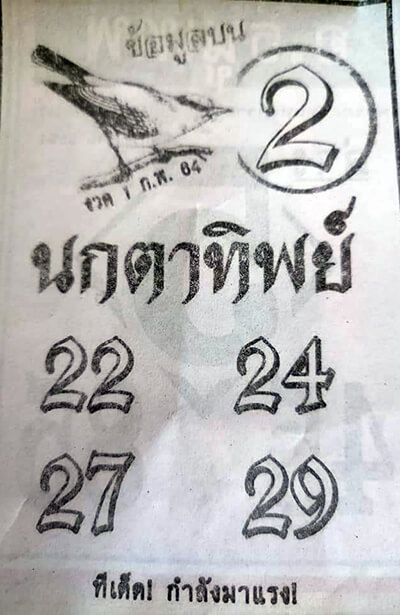 ข้อมูลบน
2
งวด 1 ก.พ. 64
นกตาทิพย์
22 24
27 29
ทีเด็ด! กำลังมาแรง!